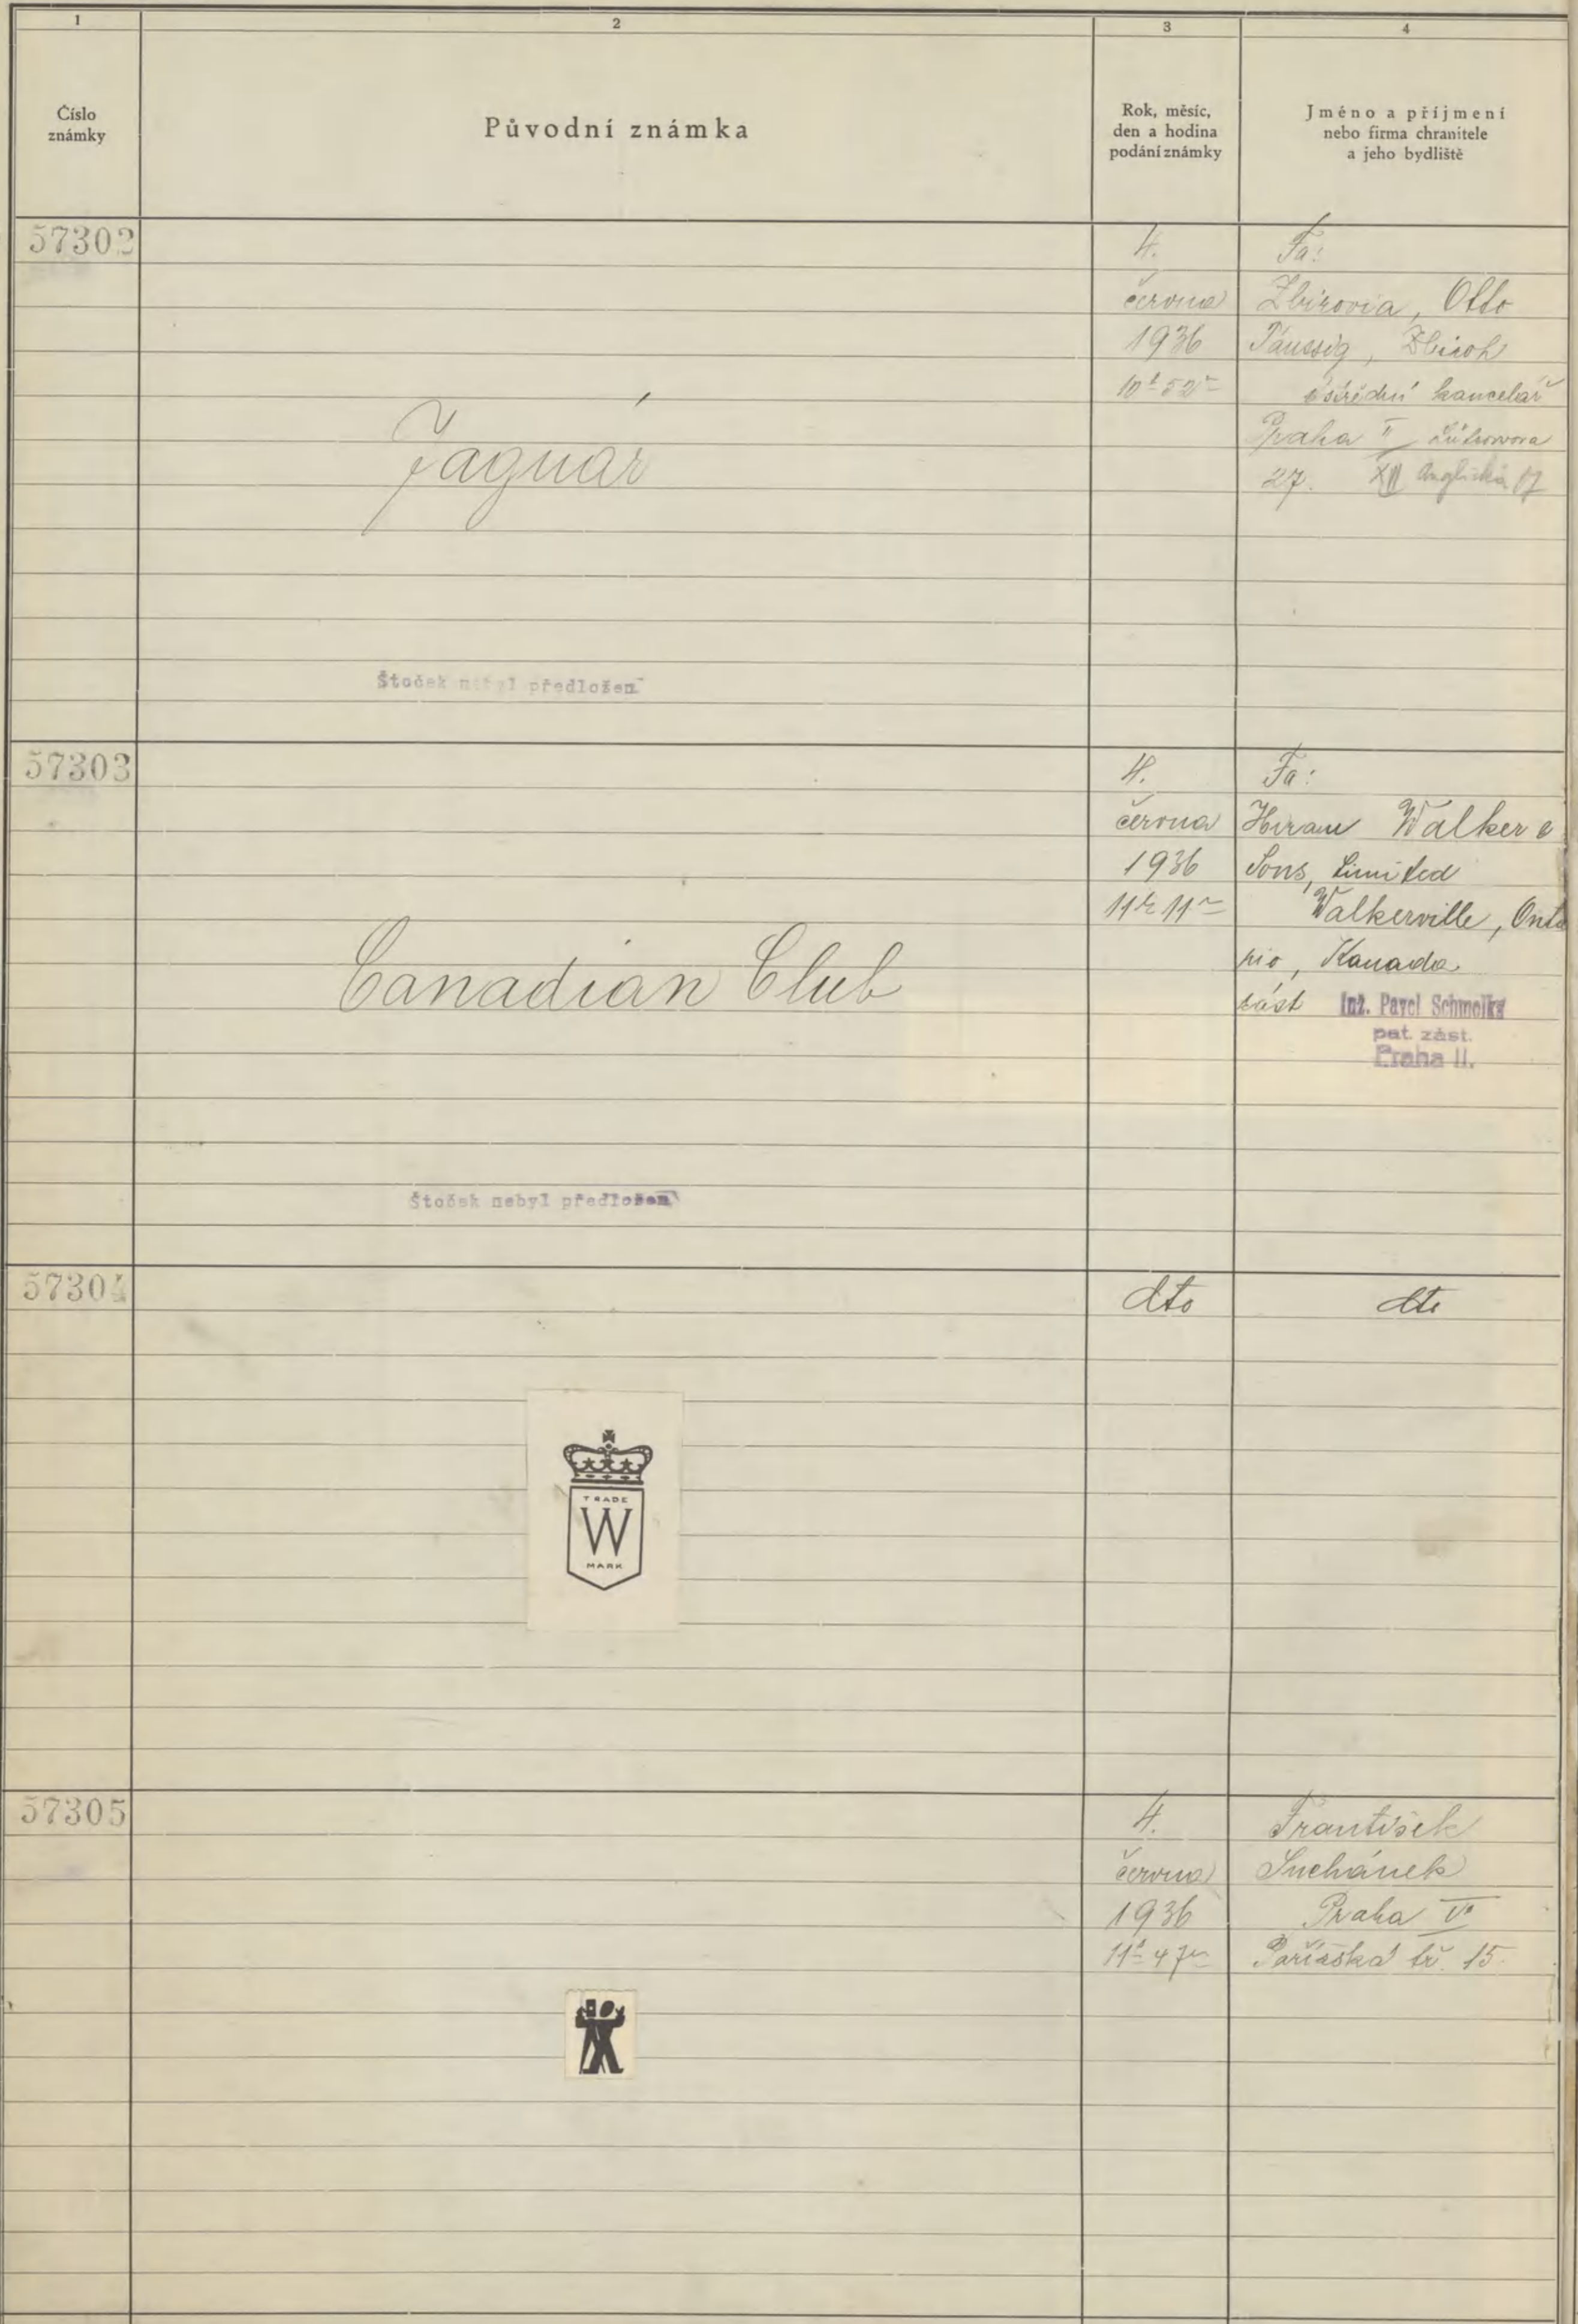 1
2
3
4
Číslo
známky
Původní známka
Rok, měsíc,
den a hodina
podání známky
Jméno a příjmení
nebo firma chranitele
a jeho bydliště
57302
Jaguár
Štoček nebyl předložen
4.
června
1936
10h 52m
Fa:
Zbirovia, Otto
Taussig, Zbiroh
ústřední kancelář
Praha II
27. XII Anglická 17
57303
Canadian Club
Štoček nebyl předložen
4.
června
1936
11h 11m
Fa:
Hiram Walker &
Sons, Limited
Walkerville, Onta
rio, Kanada
zást Inž. Pavel Schmolka
pat. zást.
Praha II.
57304
TRADE
W
MARK
dto
dto
57305
4.
června
1936
11h 47m
František
Suchánek
Praha V
Pařížská tř. 15.